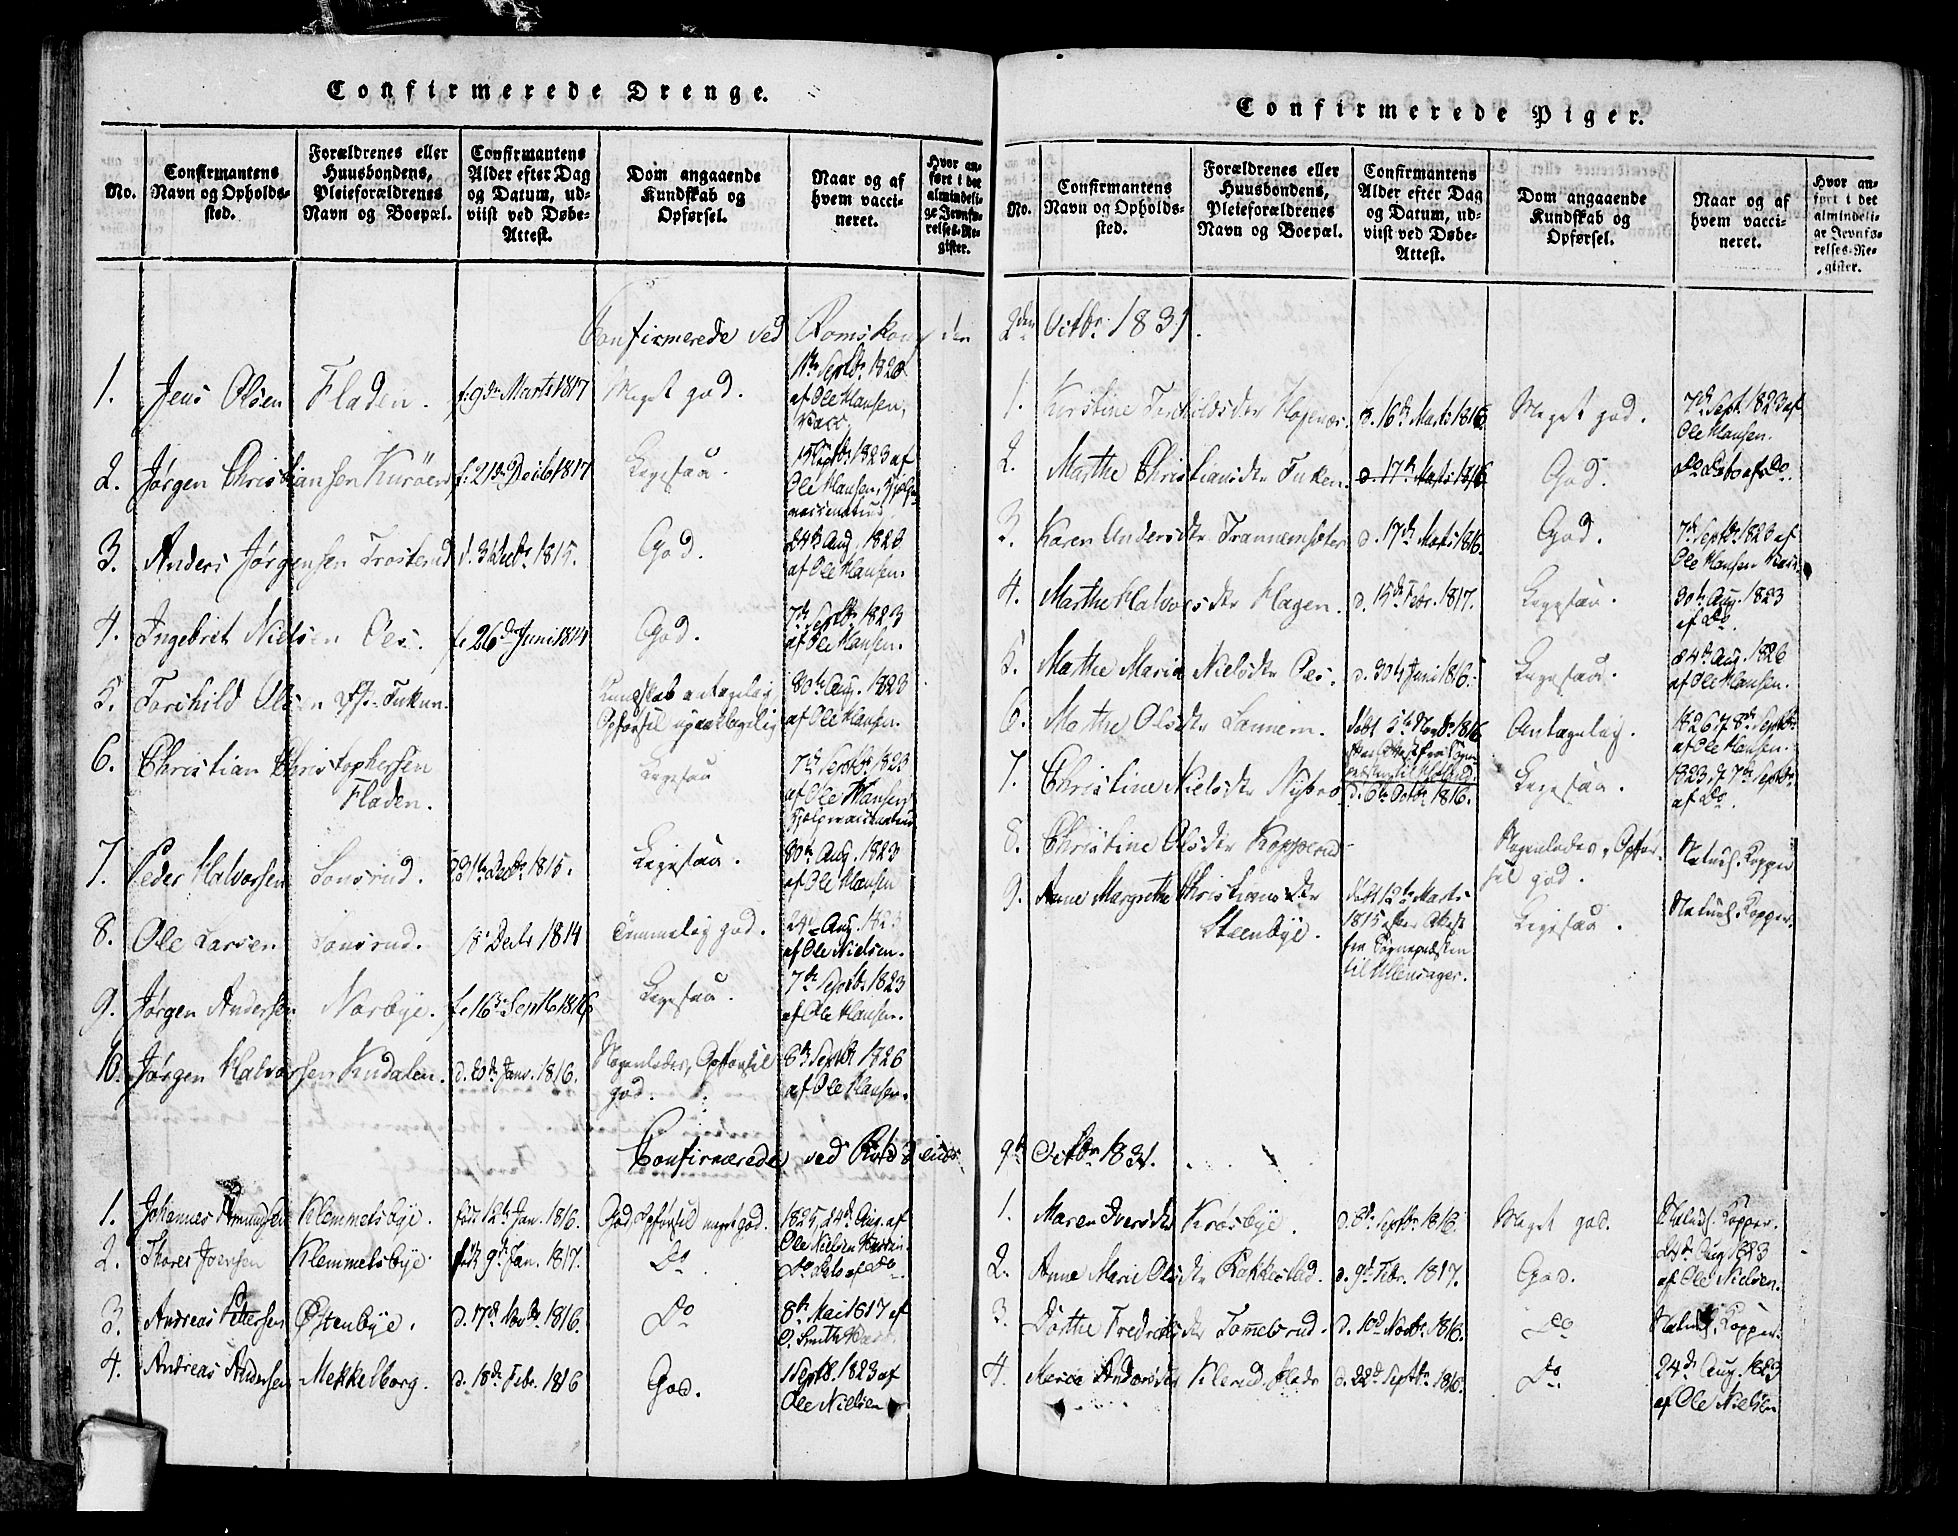 Confirmerede Drenge.
No.
Confirmantens
Navn og Opholds-
sted.
Forældrenes eller
Huusbondens,
Pleieforældrenes
Navn og Boepæl.
Confirmantens
Alder efter Dag
og Datum, ud-
viist ved Døbe-
Attest.
Dom angaaende
Kundskab og
Opførsel.
Naar og af
hvem vacci-
neret.
Hvor an-
ført i det
almindeli-
ge Jevnfø-
relses-Re-
gister.
Confirmerede ved Romskoug den
1. Jens Olsen Fladen. f. 9de Marts 1817 Meget god.
1te Septbr. 1823
af Ole Hansen,
Vacc.
2. Jørgen Christiansen Kurøen f. 21de Decb 1817 Ligesaa.
Septbr. 1823 af
Ole Hansen,
3. Anders Jørgensen Trosterud d. 3 Decbr. 1815. God.
24de Aug. 1823
af Ole Hansen.
4. Ingebret Nielsen Oes. f. 26de Juni God.
7de Septbr. 1823
af Ole Hansen.
5. Torchild Olsen Tukun.
Kundskab antagelig
Opførsel
30te Aug. 1823
af Ole Hansen.
6. Christian Christophersen
Fladen.
Ligesaa
7de Septbr. 1823
af Ole Hansen
7. Peder Halvorsen Sonsrud. 31te Decbr. 1815. Ligesaa.
30te Aug. 1823
af Ole Hansen
8. Ole Larsen Sonsrud. 18 Decbr 1814 Temmelig god.
24de Aug. 1823
af Ole Nielsen.
9. Jørgen Andersen Norbye. f. 16de Septb 1816 Ligesaa.
7de Septbr. 1823
af Ole Hansen.
10. Jørgen Halvorsen Kudalen. d. 20de Janv. 1816.
Nogenledes, Opførsel
god.
6te Septbr 1826
af Ole Hansen.
Confirmerede ved
1. Johannes Amundsen Klemmelsbye. født 12te Jan. 1816. God, Opførsel meget god.
1825, 24de Aug. af
Ole Nielsen
2. Thores Joensen Klemmelsbye. født 9de Jan. 1817. Do
Do Dato af Do
3. Andreas Pettersen Østenbye. d. 17de Novbr. 1816. Do
8de Mai 1817 af
O. Smith
4. Andreas Andersen Mekkelborg. d. 18de Febr. 1816 God.
1 Septb. 1823 af
Ole Nielsen
Confirmerede Piger.
No.
Confirmantens
Navn og Opholds-
sted.
Forældrenes eller
Huusbondens,
Pleieforældrenes
Navn og Boepæl.
Confirmantens
Alder efter Dag
og Datum, ud-
viist ved Døbe-
Attest.
Dom angaaende
Kundskab og
Opførsel.
Naar og af
hvem vacci-
neret.
Hvor an-
ført i det
almindeli-
ge Jevnfø-
relses-Re-
gister.
2den Octbr. 1831.
1. Kirstine Torkildsdtr Hogenæs. d. 16de Marts 1816 Meget god.
7de Sept. 1823 af
Ole Hansen.
2. Marthe Christiansdtr Tuken. d. 17de Marts 1816 God.
Do Dato af Do.
3. Karen Andersdtr Trannemsæter d. 17de Marts 1816. God.
7de Septbr. 1823 af
Ole Hansen
4. Marthe Halvorsdtr Hagen. d. 15de Febr. 1817. Ligesaa.
30te Aug. 1823
af Do.
5. Marthe Maria Nielsdtr Oes. d. 30te Juni 1816. Ligesaa.
24de Aug. 1826
af Ole Hansen.
6. Marthe Olsdtr Lannem. født 5te Novbr. 1816 Antagelig.
1826 d. 8de Septbr.
af Ole Hansen.
7. Christine Nielsdtr Nybro d. 6te Octbr. 1816. Ligesaa.
1823, d. 7de Septbr.
af Do.
8. Christine Olsdtr Kopperud
Nogenledes, Opfør-
sel god.
Naturl. Kopper
9. Anne Margrethe Christiansdtr
Steenbye.
født 12te Marts
1815 efter Attest
fra Sognepræsten
til Ullensager.
Ligesaa.
Naturl. Kopper.
9de Octbr. 1831.
1. Maren Iversdtr Krosbye. d. 8de Septbr. 1816. Meget god.
Naturl. Kopper.
2. Anne Marie Olsdtr Rakkestad. d. 9de Febr. 1817. God.
24de Aug 1823
af Ole Nielsen.
3. Dorthe Fredriksdtr Tommelsrud. d. 10de Novbr. 1816. Do
Naturl. Kopper.
4. Maria Andersdtr Klerud d. 22de Septbr. 1816. Do
24de Aug. 1823
af Ole Nielsen